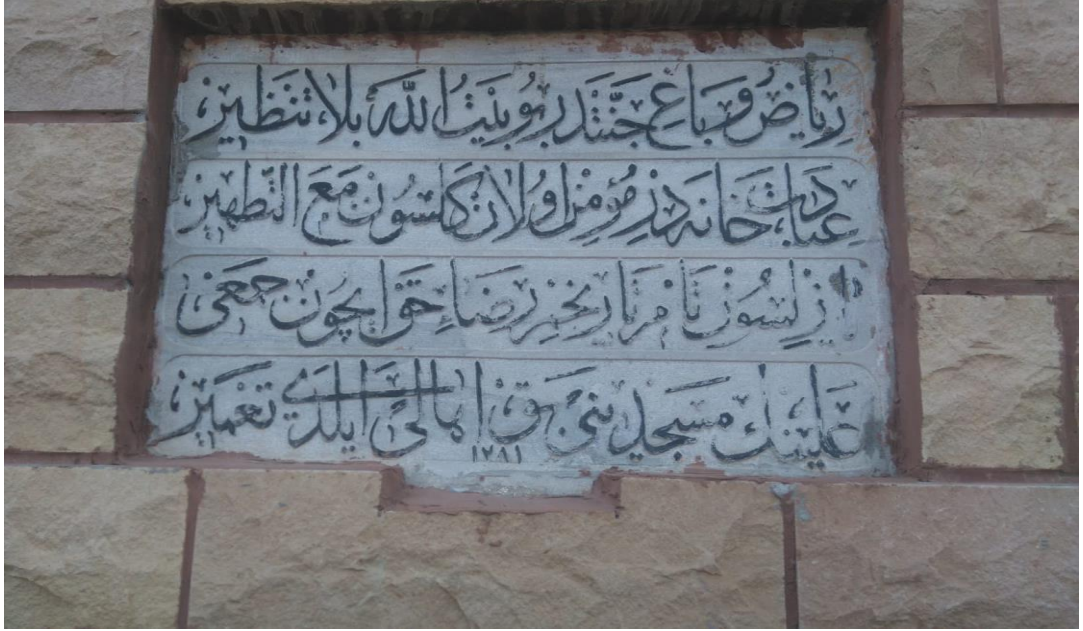 رياض و باغ جنتدر بو بيت الله بلا تنظير
عبادت خانه در مؤمن اولان كلسون مع التطهير
يازلسون نام تاريخمز رضاء حق ايچون جمعى
مسجدينى اهالى ايلدى تعمير
١٢٨١